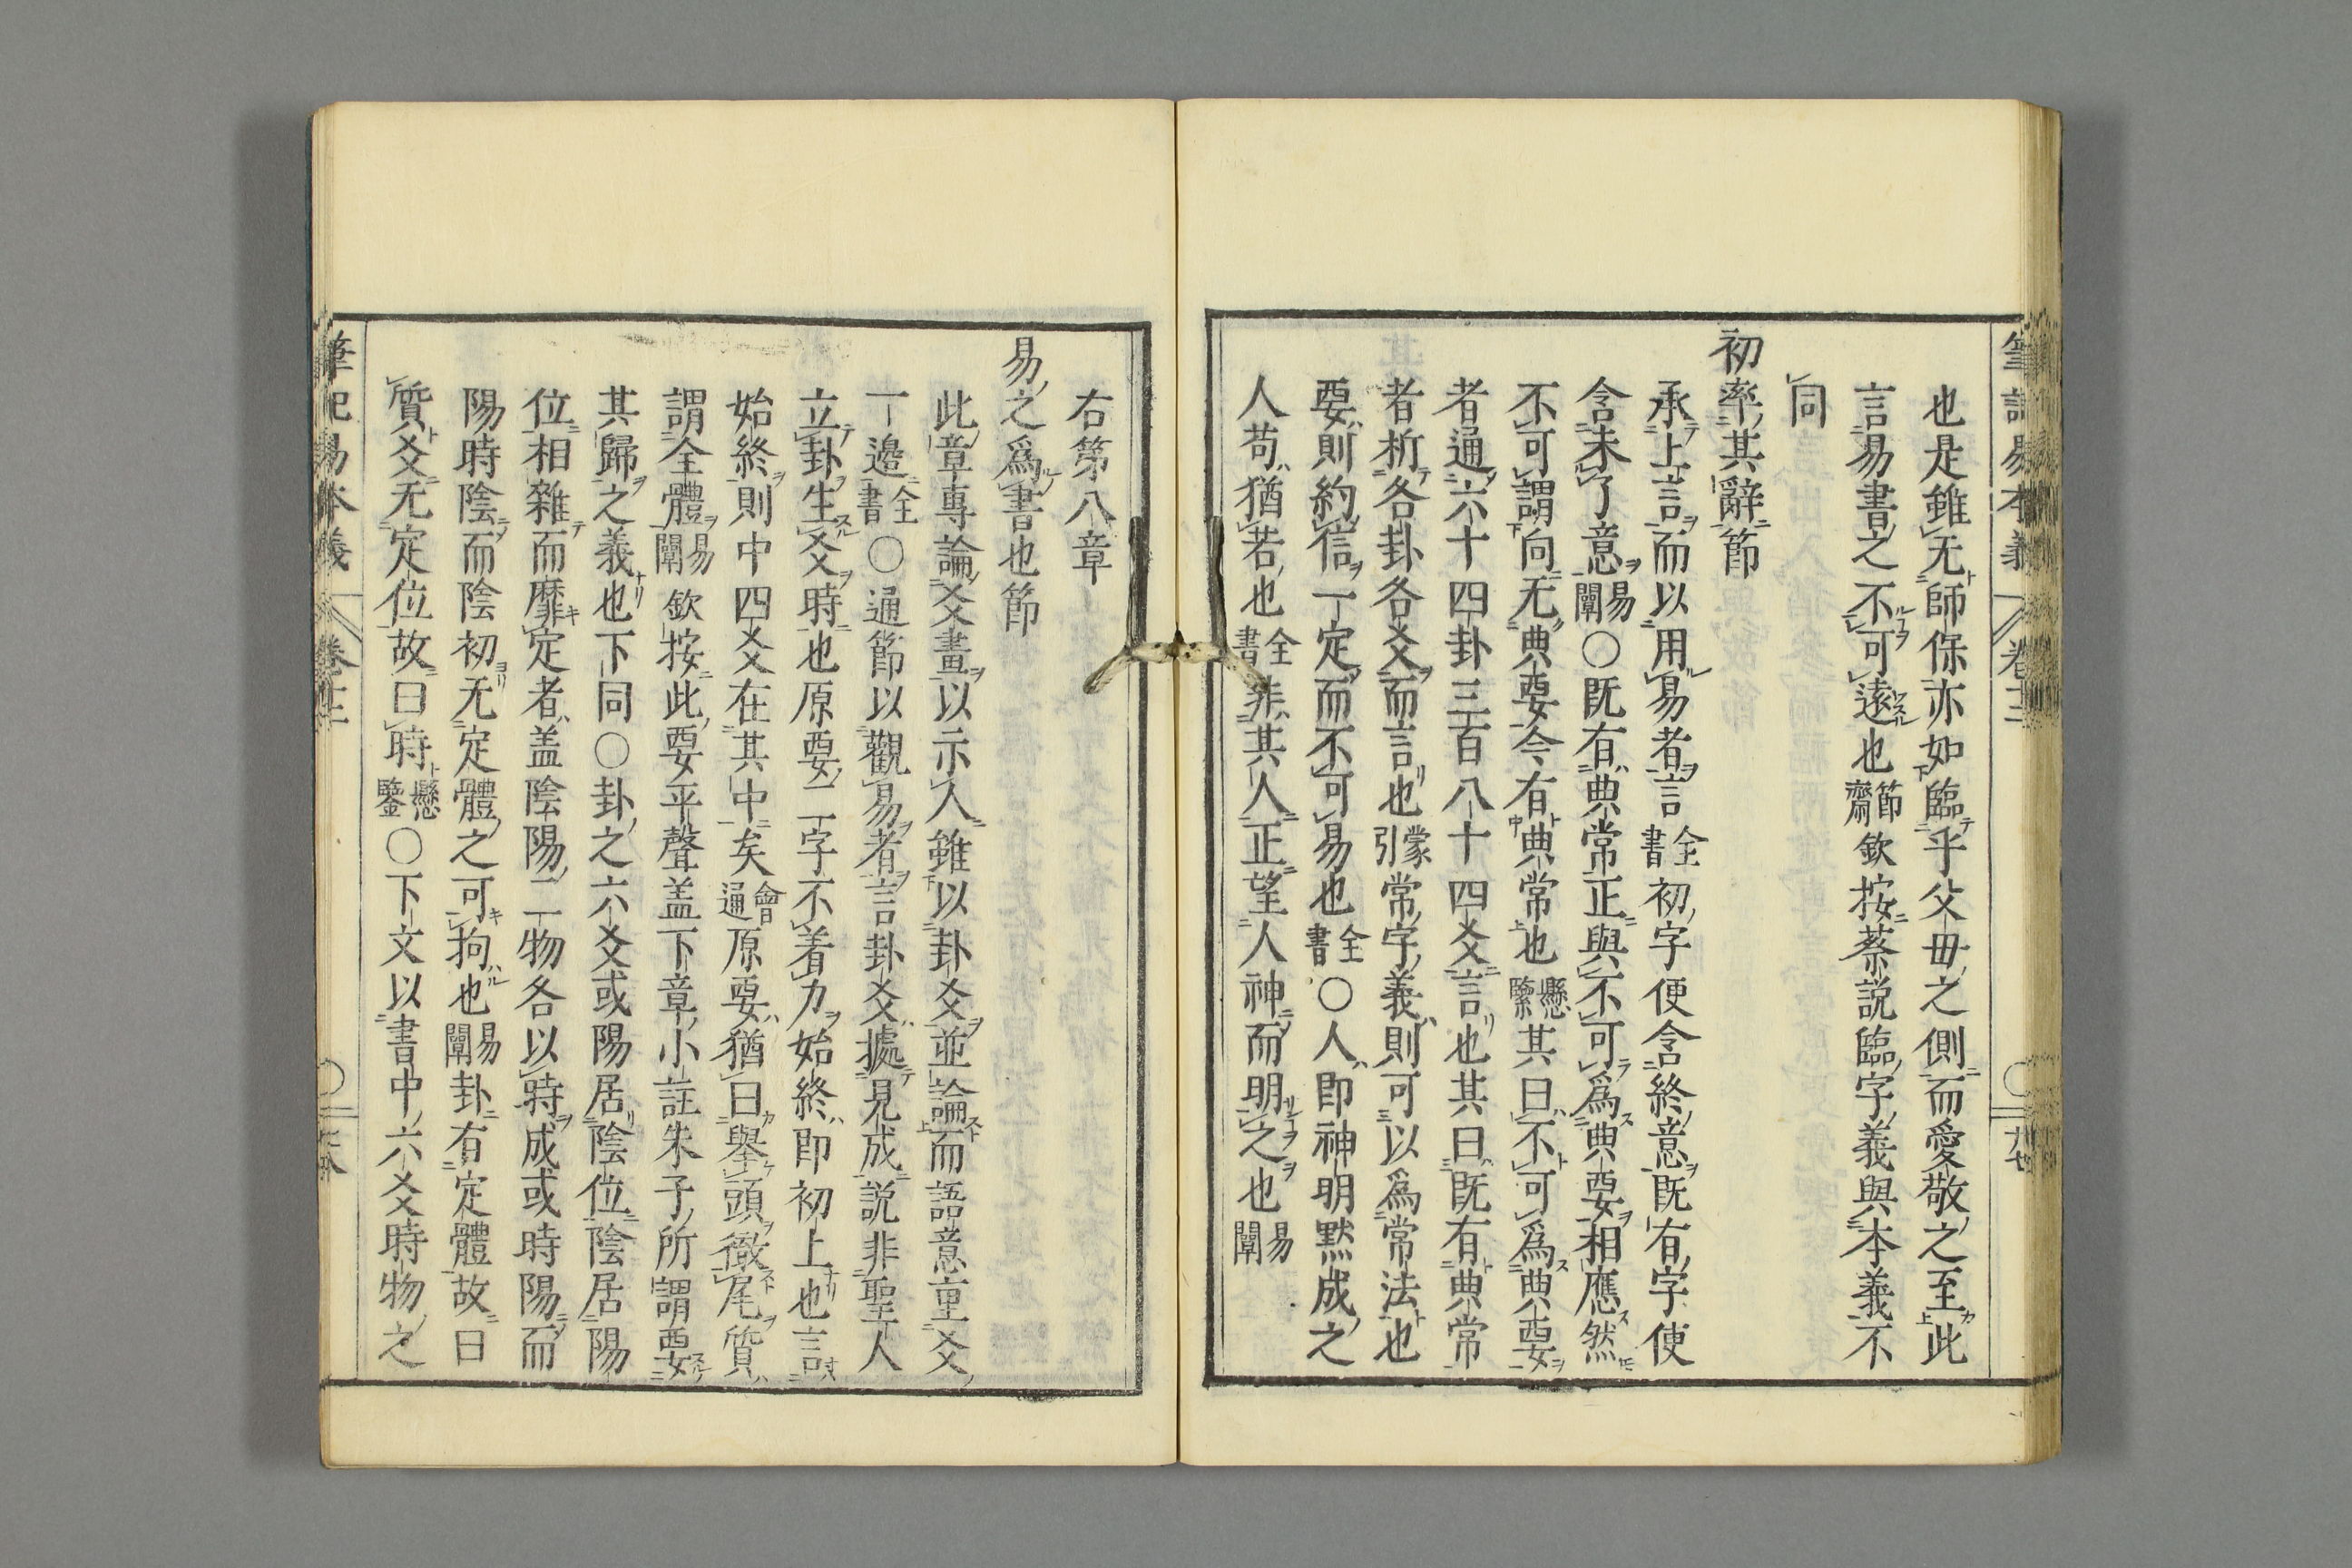 也是雖无師保亦如臨乎父毋之側而愛敬之至此
言易書之不可遠也節齋欽按蔡説臨字義與本義不
同
初率其辭節
承上言而以用易者言全書初字便含終意既有字使
含未了意易闡〇既有典常正與不可爲典要相應然
不可謂向无典要今有典常也懸鑒其曰不可爲典要
者通六十四卦三百八十四爻言也其曰既有典常
者析各卦各爻而言也蒙引常字義則可以爲常法也
要則約信一定而不可易也全書〇人即神明黙成之
人苟猶若也全書非其人正望人神而明之也易闡
右第八章
易之爲書也節
此章專論爻畫以示人雖以卦爻並論而語意重爻
一邉全書〇通節以觀易者言卦爻據見成説非聖人
立卦生爻時也原要二字不着力始終即初上也言
始終則中四爻在其中矣會通原要猶曰舉頭徹尾質
謂全體易闡欽按此要平聲盖下章小註朱子所謂要
其歸之義也下同〇卦之六爻或陽居陰位陰居陽
位相雜而靡定者盖陰陽二物各以時成或時陽而
陽時陰而陰初无定體之可拘也易闡卦有定體故曰
質爻无定位故曰時懸鑒〇下文以書中六爻時物之
筆記易本義